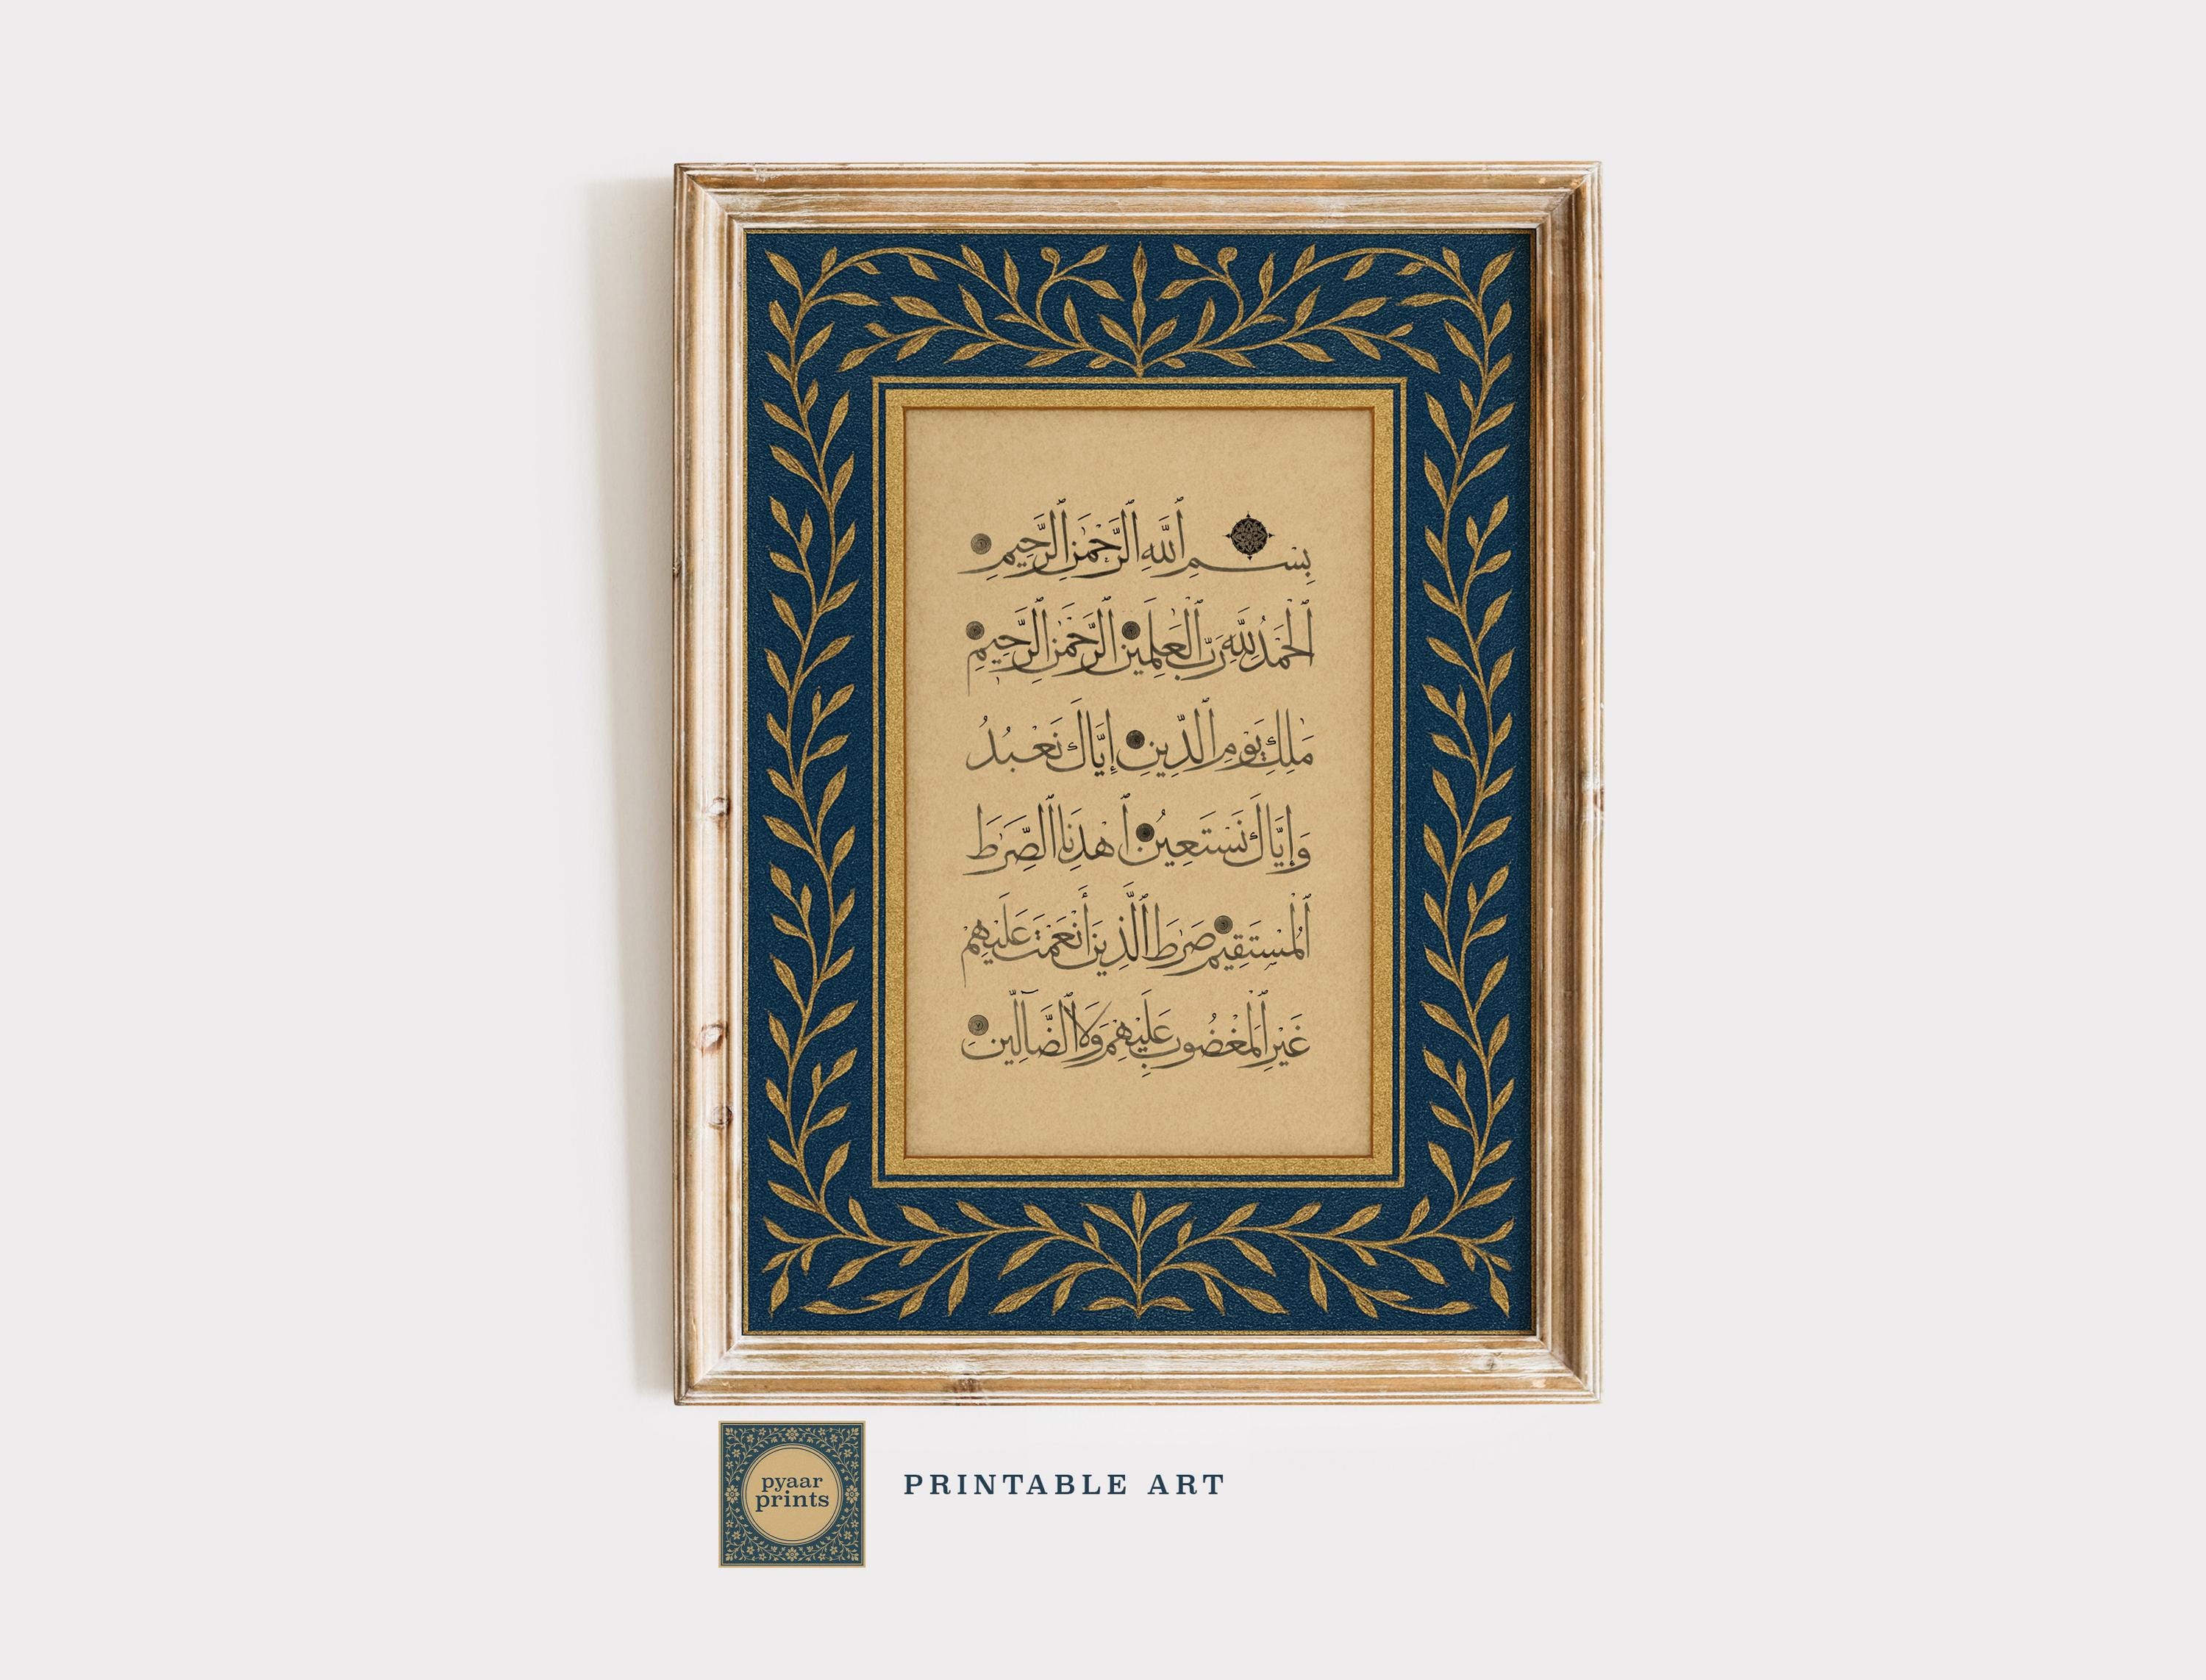 بِسْمِ ٱللَّهِ ٱلرَّحْمَٰنِ ٱلرَّحِيمِ
ٱلْحَمْدُ لِلَّهِ رَبِّ ٱلْعَٰلَمِينَ ٱلرَّحْمَٰنِ ٱلرَّحِيمِ
مَٰلِكِ يَوْمِ ٱلدِّينِ إِيَّاكَ نَعْبُدُ
وَإِيَّاكَ نَسْتَعِينُ ٱهْدِنَا ٱلصِّرَٰطَ
ٱلْمُسْتَقِيمَ صِرَٰطَ ٱلَّذِينَ أَنْعَمْتَ عَلَيْهِمْ
غَيْرِ ٱلْمَغْضُوبِ عَلَيْهِمْ وَلَا ٱلضَّآلِّينَ
pyaar
prints
PRINTABLE ART